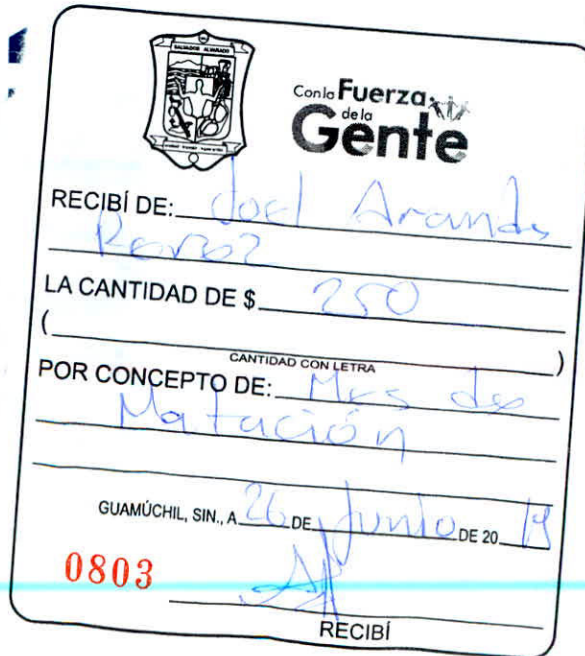 SALVADOR ALVARADO
Con la Fuerza
de la
Gente
RECIBÍ DE: Joel Aranda
Perez
LA CANTIDAD DE $ 250
( )
CANTIDAD CON LETRA
POR CONCEPTO DE: Mes de
Natación
GUAMÚCHIL, SIN., A 26 DE Junio DE 20 19
0803
RECIBÍ